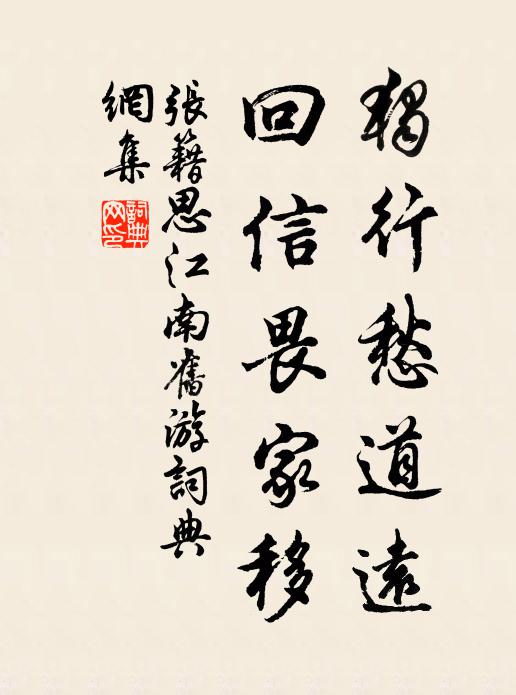 獨行愁道遠
回信畏家移
張籍思江南舊游詞典
網集
詞典網印